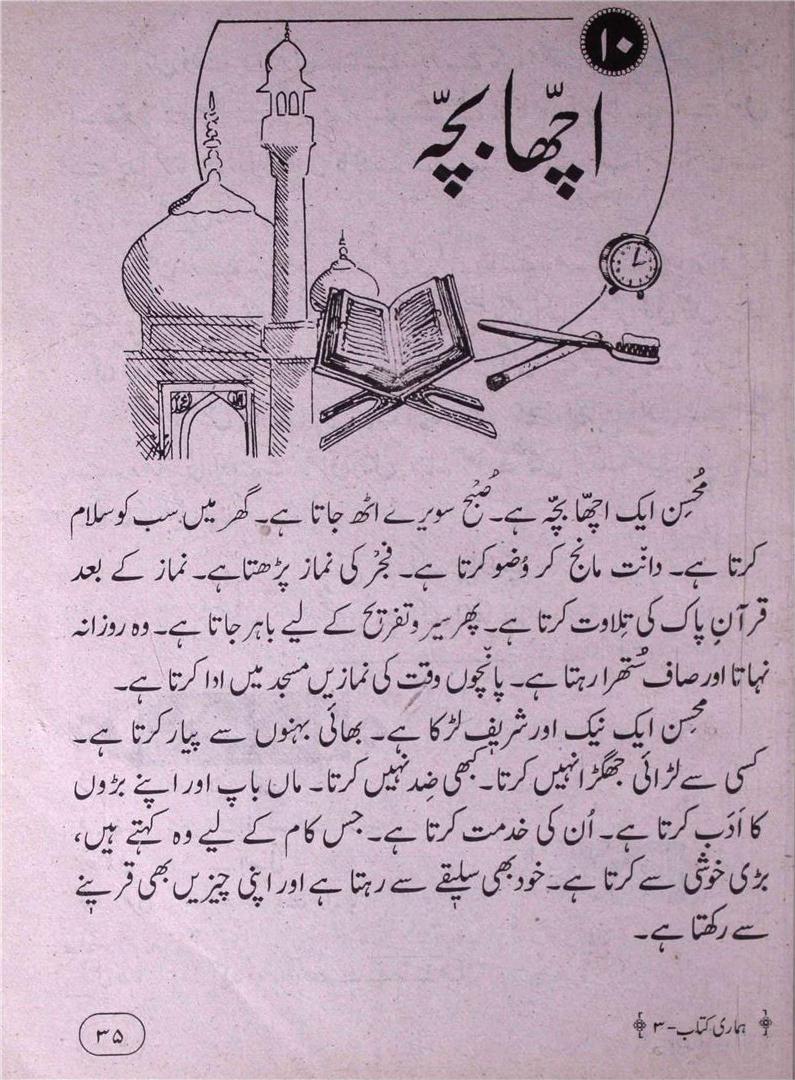 ۱۰
اچّھا بچّہ
مُحسِن ایک اچّھا بچّہ ہے۔ صُبْح سویرے اٹھ جاتا ہے۔ گھر میں سب کو سلام
کرتا ہے۔ دانْت مانج کر وُضو کرتا ہے۔ فجْر کی نماز پڑھتا ہے۔ نماز کے بعد
قرآنِ پاک کی تِلاوت کرتا ہے۔ پھر سیر و تفریح کے لیے باہر جاتا ہے۔ وہ روزانہ
نہاتا اور صاف سُتھرا رہتا ہے۔ پانْچوں وقت کی نمازیں مسجد میں ادا کرتا ہے۔
محسِن ایک نیک اور شریف لڑکا ہے۔ بھائی بہنوں سے پیار کرتا ہے۔
کسی سے لڑائی جھگڑا نہیں کرتا۔ کبھی ضِد نہیں کرتا۔ ماں باپ اور اپنے بڑوں
کا اَدَب کرتا ہے۔ اُن کی خدمت کرتا ہے۔ جس کام کے لیے وہ کہتے ہیں،
بڑی خوشی سے کرتا ہے۔ خود بھی سلیقے سے رہتا ہے اور اپنی چیزیں بھی قرینے
سے رکھتا ہے۔
ہماری کتاب - ۳
۳۵